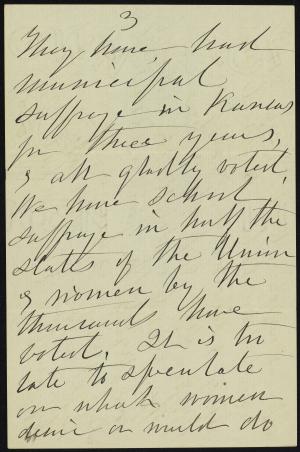 3
They have had
municipal
suffrage in Kansas
for three years,
& all gladly voted.
We have school
suffrage in half the
states of the Union
& women by the
thousands have
voted. It is too
late to speculate
on what women
desire or would do